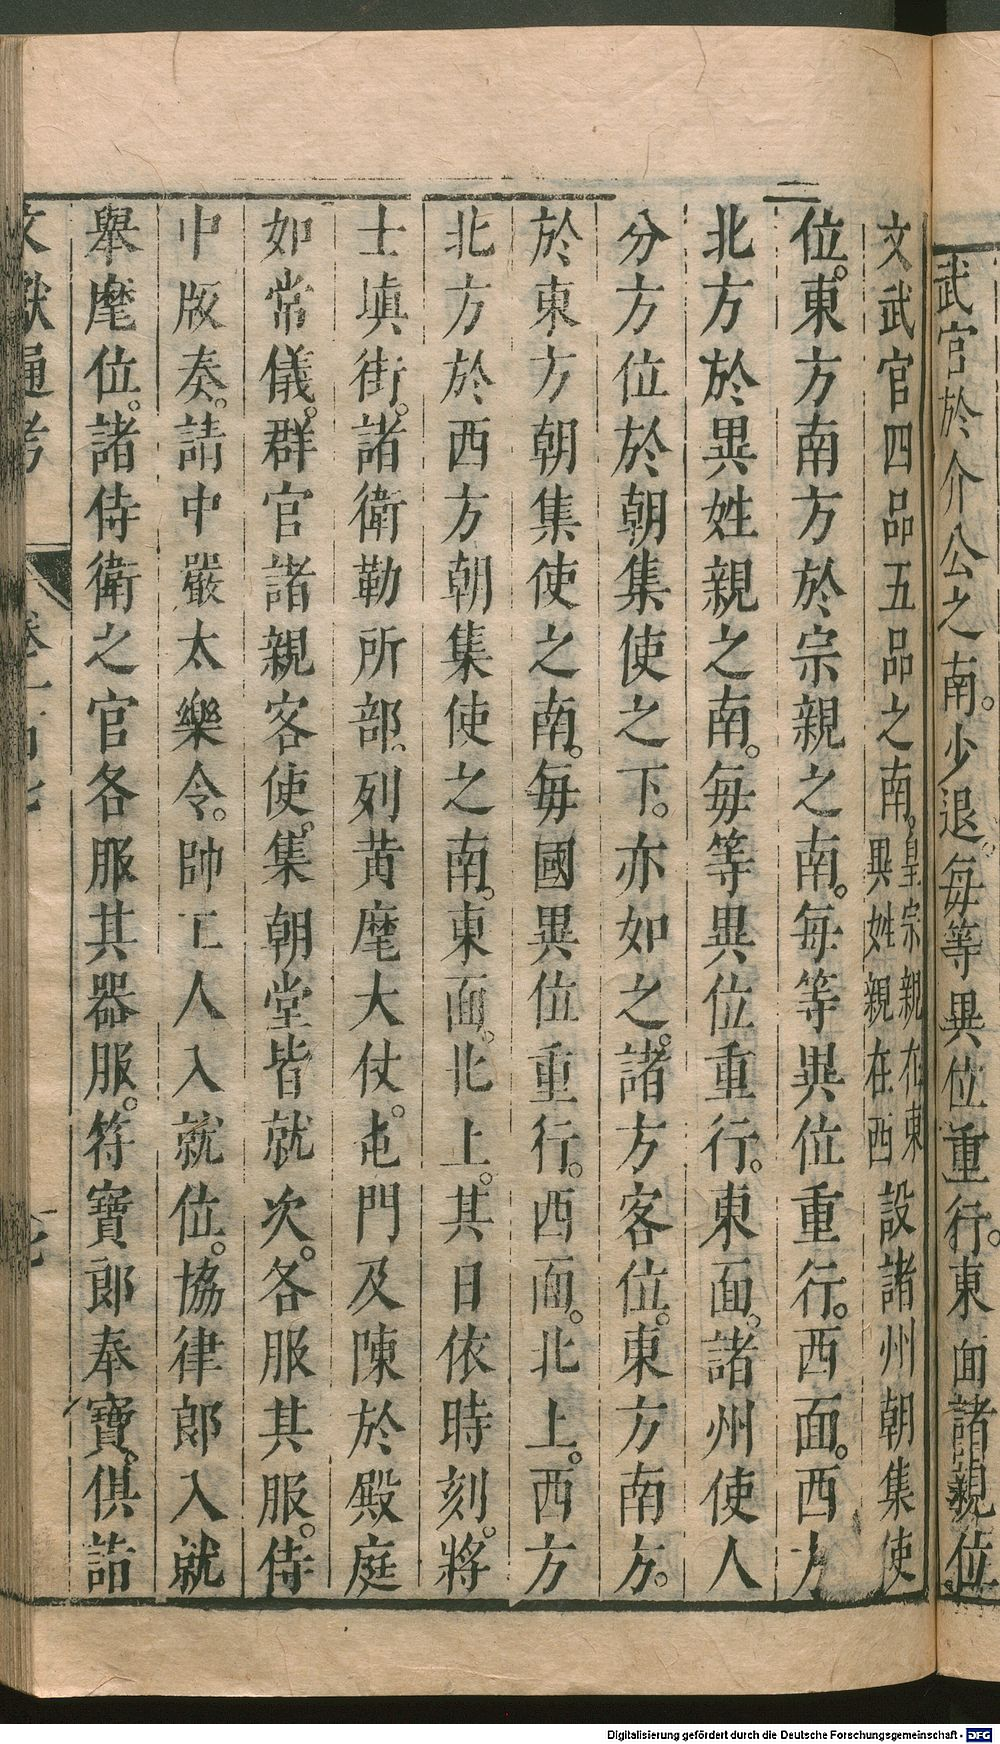 武官於介公之南。少退。每等異位重行。東面諸親位。
文武官四品五品之南。皇宗親在東異姓親在西設諸州朝集使
位。東方南方於宗親之南。每等異位重行。西面。西方
北方於異姓親之南。每等異位重行。東面。諸州使人
分方位於朝集使之下。亦如之。諸方客位。東方南方。
於東方朝集使之南。每國異位重行。西面。北上。西方
北方於西方朝集使之南。東面。北上。其日依時刻。將
士塡街。諸衛勒所部。列黄麾大仗。屯門及陳於殿庭
如常儀。群官諸親客使。集朝堂皆就次。各服其服。侍
中版奏。請中嚴太樂令。帥工人入就位。協律郎入就
舉麾位。諸侍衛之官各服其器服。符寶郎奉寶。俱詣
文獻通考 卷一百七
Digitalisierung gefördert durch die Deutsche Forschungsgemeinschaft - DFG